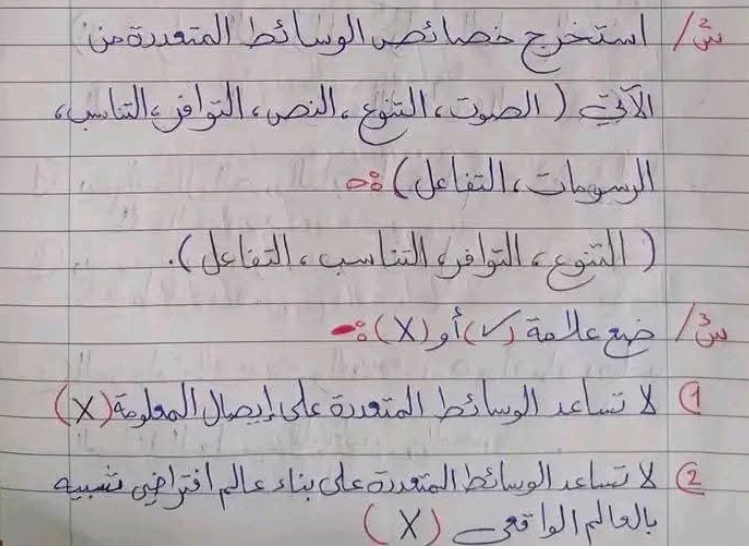 س٢/ استخرج خصائص الوسائط المتعددة من
الآتي ( الصوت، التنوع، النص، التوافر، التناسب،
الرسومات، التفاعل ):-
( التنوع، التوافر، التناسب، التفاعل ).
س٣/ ضع علامة (✓) أو (X):-
① لا تساعد الوسائط المتعددة على إيصال المعلومة (X)
② لا تساعد الوسائط المتعددة على بناء عالم افتراضي شبيه
بالعالم الواقعي (X)